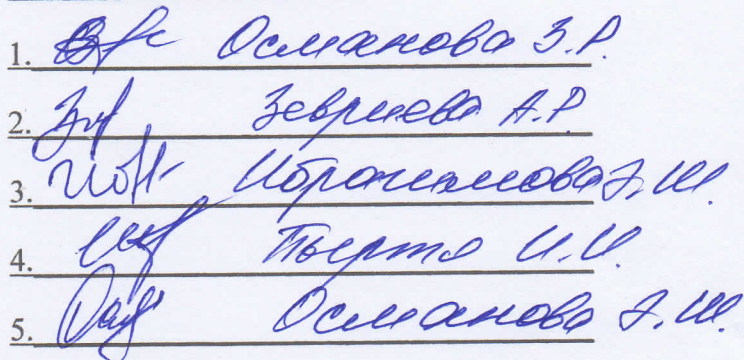 1. Османова З.Р.
2. Зевриева А.Р
3. Ибрагимова Э.Ш.
4. И.И.
5. Османова Э.Ш.